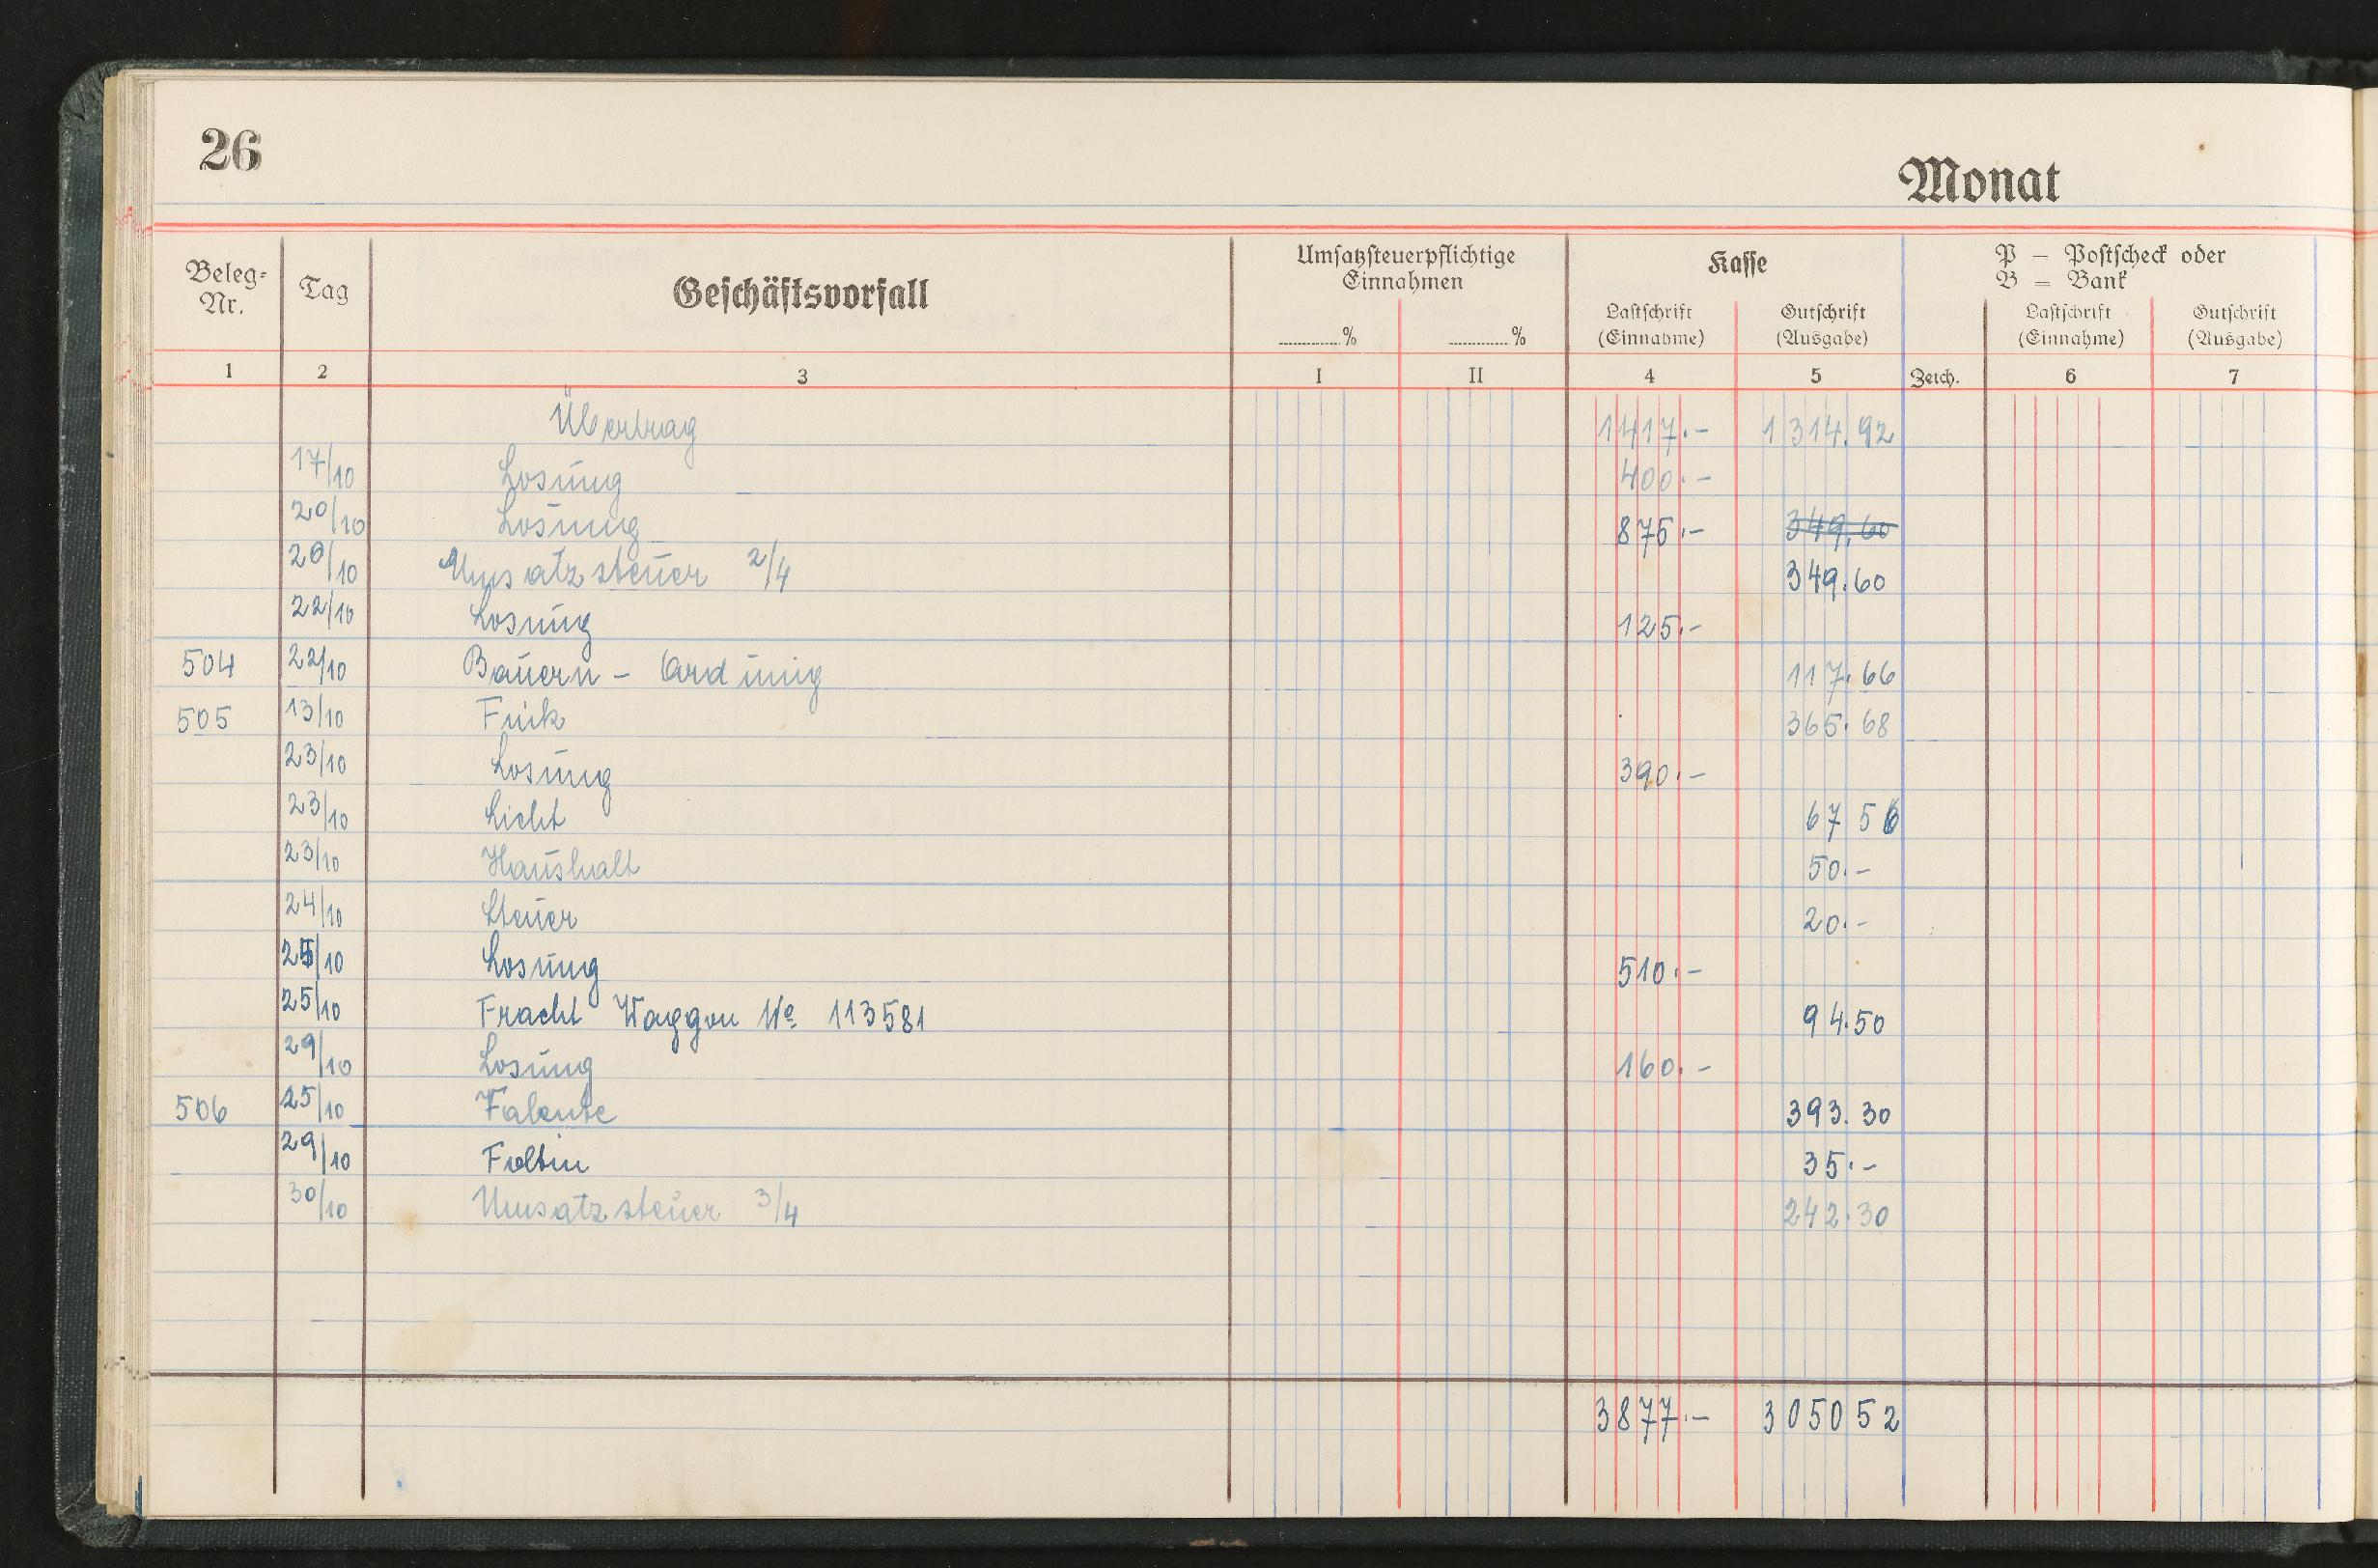 26
Monat
Beleg-Nr. Tag Geschäftsvorfall Umsatzsteuerpflichtige Einnahmen Kasse P — Postscheck oder B = Bank
% % Lastschrift (Einnahme) Gutschrift (Ausgabe) Lastschrift (Einnahme) Gutschrift (Ausgabe)
1 2 3 I II 4 5 Zeich. 6 7
Übertrag 1417.- 1314.92
17/10 Losung 400.-
20/10 Losung 875.- 349.60
20/10 Umsatzsteuer 2/4 349.60
22/10 Losung 125.-
504 22/10 Bauern - 117.66
505 13/10 Frick 365.68
23/10 Losung 390.-
23/10 Licht 67 56
23/10 Haushalt 50.-
24/10 Steuer 20.-
25/10 Losung 510.-
25/10 Fracht Waggon No 113581 94.50
29/10 Losung 160.-
506 25/10 393.30
29/10 Foltin 35.-
30/10 Umsatzsteuer 3/4 242.30
3877.- 3050 52